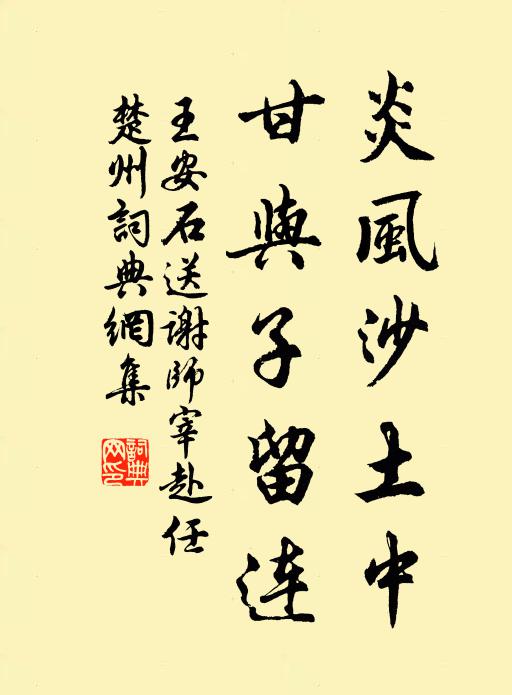 炎風沙土中
甘與子留連
王安石送謝師宰赴任
楚州詞典網集
詞典
网印